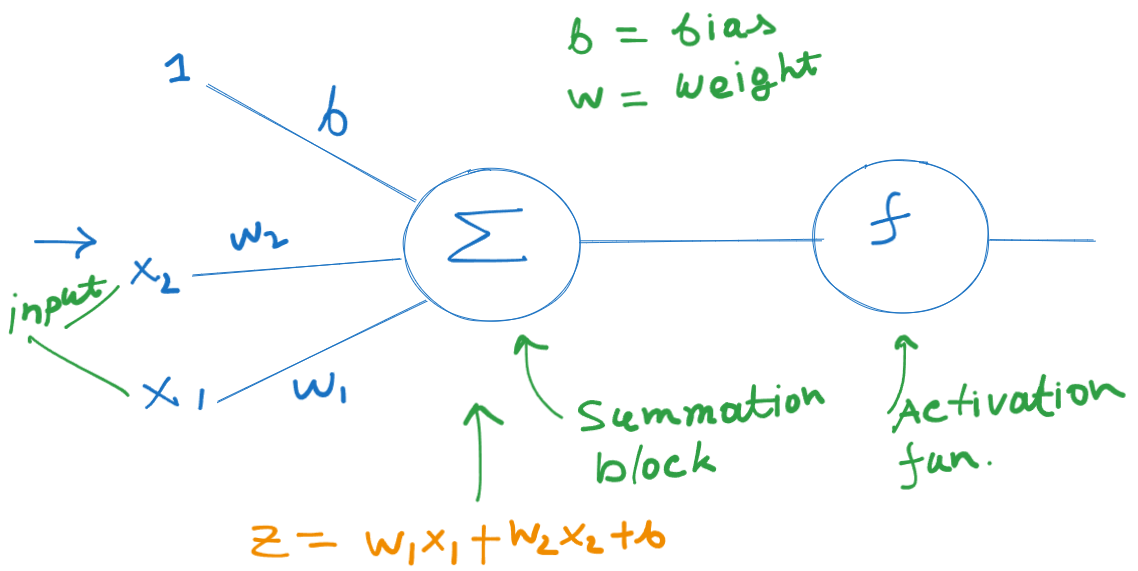 b = bias
w = weight
1
b
w₂
x₂
input
x₁
w₁
Σ
f
Summation
block
Activation
fun.
z = w₁x₁ + w₂x₂ + b